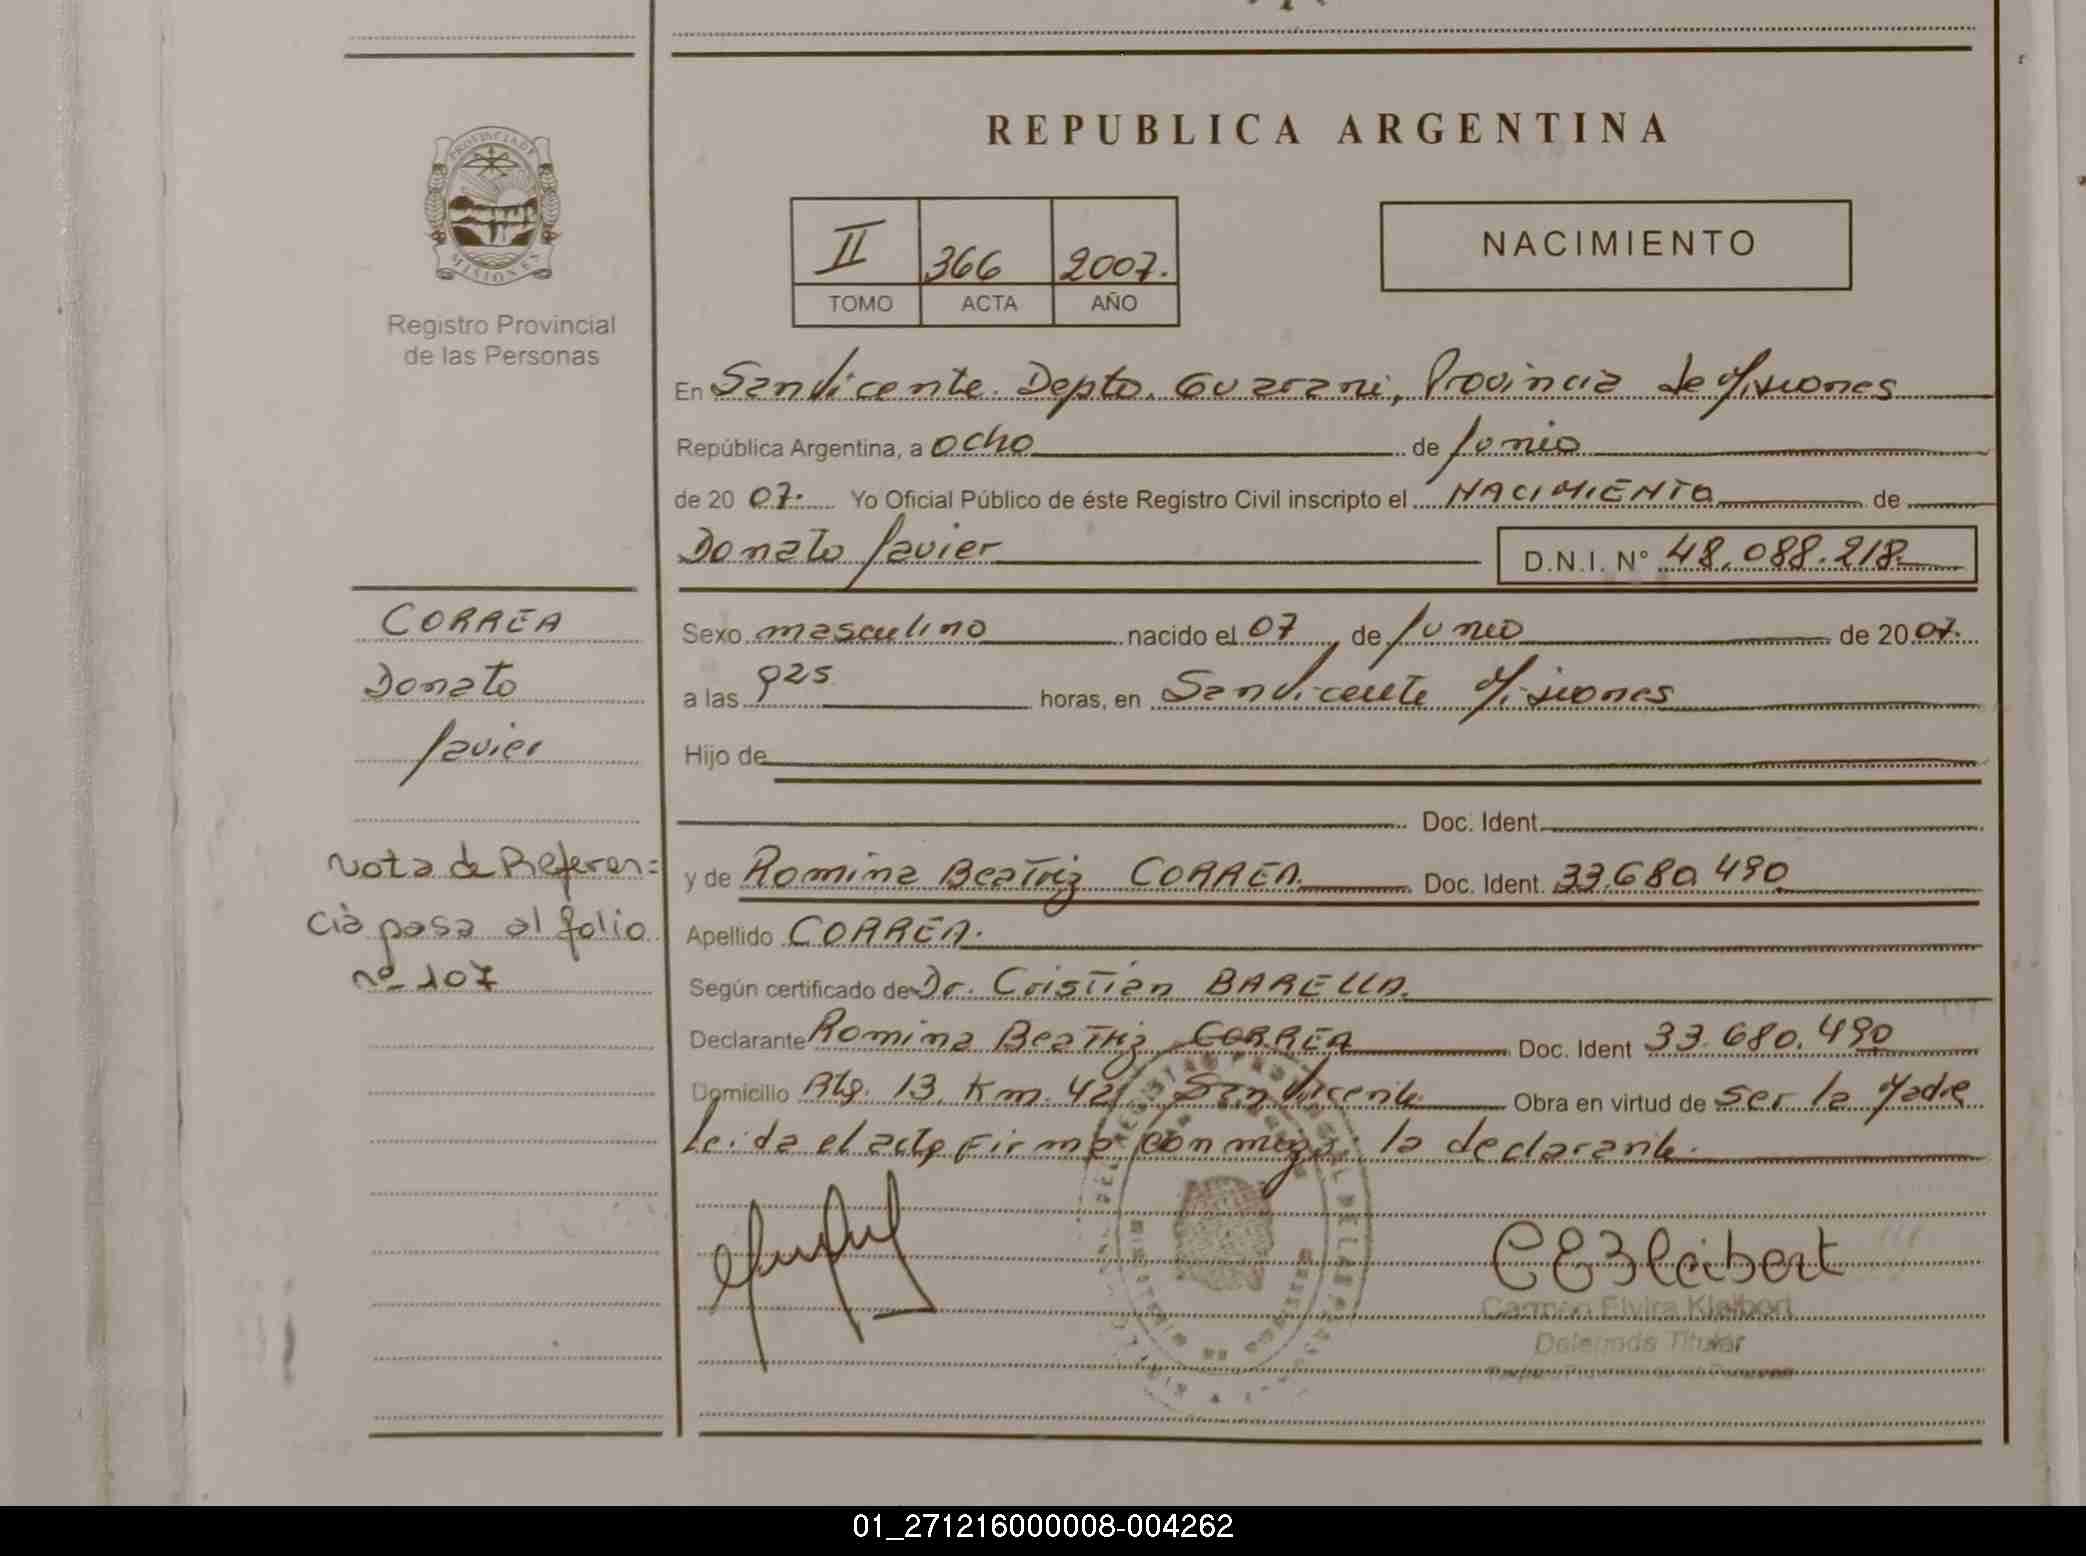 REPUBLICA ARGENTINA
PROVINCIA DE
MISIONES
Registro Provincial
de las Personas
II 366 2007.
TOMO ACTA AÑO
NACIMIENTO
En San Vicente. Depto. Guarani, Provincia de Misiones
República Argentina, a ocho de Junio
de 20 07. Yo Oficial Público de éste Registro Civil inscripto el NACIMIENTO de
Donato Javier D.N.I. N° 48.088.218
CORREA
Donato
Javier
Sexo masculino nacido el 07 de Junio de 20 07.
a las 925 horas, en San Vicente Misiones
Hijo de
Doc. Ident.
Nota de Referen=
cia pasa al folio
nº 107
y de Romina Beatriz CORREA. Doc. Ident. 33.680.490
Apellido CORREA.
Según certificado de Dr. Cristian BARELLA.
Declarante Romina Beatriz CORREA Doc. Ident 33.680.490
Domicilio Rta. 13. Km. 42 San Vicente Obra en virtud de ser la Madre
Leida el acta firma conmigo: la declarante.
CEKleibert
Carmen Elvira Kleibert
Delegada Titular
01_271216000008-004262